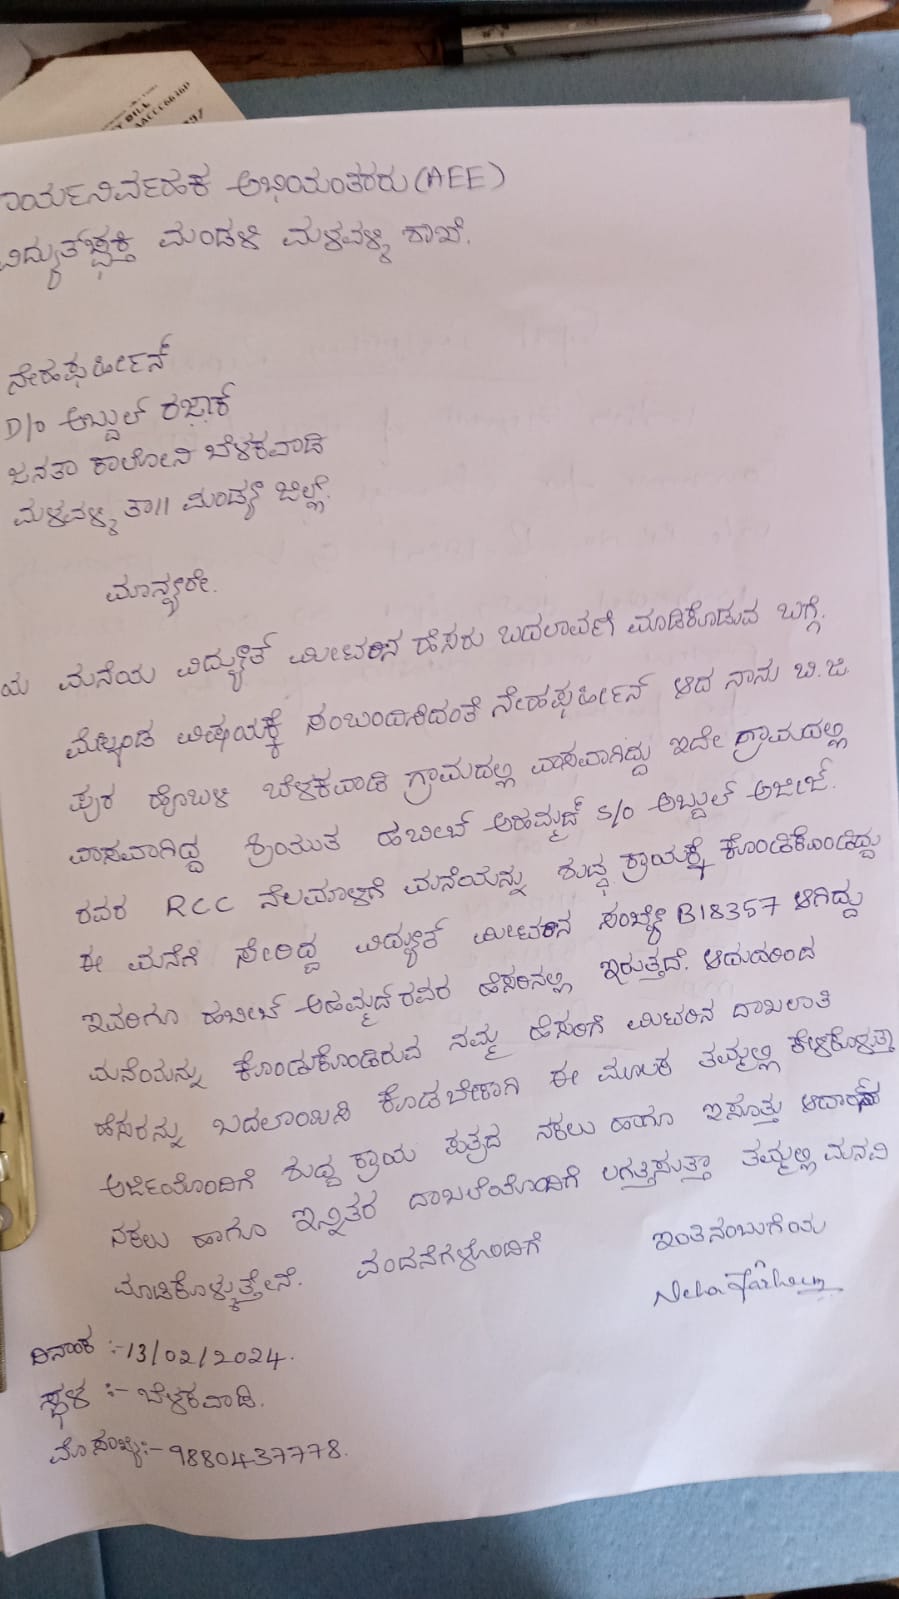 BILL
AACCC6636D
ಾರ್ಯನಿರ್ವಾಹಕ ಅಭಿಯಂತರರು (AEE)
ವಿದ್ಯುತ್‌ಶಕ್ತಿ ಮಂಡಳಿ ಮಳವಳ್ಳಿ ಶಾಖೆ.
ನೇಹಫರ್ಹೀನ್
D/o ಅಬ್ದುಲ್ ರಜ಼ಾಕ್
ಜನತಾ ಕಾಲೋನಿ ಬೆಳಕವಾಡಿ
ಮಳವಳ್ಳಿ ತಾ|| ಮಂಡ್ಯ ಜಿಲ್ಲೆ.
ಮಾನ್ಯರೇ.
ಯ ಮನೆಯ ವಿದ್ಯುತ್ ಮೀಟರಿನ ಹೆಸರು ಬದಲಾವಣೆ ಮಾಡಿಕೊಡುವ ಬಗ್ಗೆ.
ಮೇಲ್ಕಂಡ ವಿಷಯಕ್ಕೆ ಸಂಬಂದಿಸಿದಂತೆ ನೇಹಫರ್ಹೀನ್ ಆದ ನಾನು ಬಿ.ಜಿ.
ಪುರ ಹೋಬಳಿ ಬೆಳಕವಾಡಿ ಗ್ರಾಮದಲ್ಲಿ ವಾಸವಾಗಿದ್ದು ಇದೇ ಗ್ರಾಮದಲ್ಲಿ
ವಾಸವಾಗಿದ್ದ ಶ್ರೀಯುತ ಹಬೀಬ್ ಅಹಮ್ಮದ್ S/o ಅಬ್ದುಲ್ ಅಜೀಜ್.
ರವರ RCC ನೆಲಮಾಳಿಗೆ ಮನೆಯನ್ನು ಶುದ್ಧ ಕ್ರಾಯಕ್ಕೆ ಕೊಂಡಿಕೊಂಡಿದ್ದು
ಈ ಮನೆಗೆ ಸೇರಿದ್ದ ವಿದ್ಯುತ್ ಮೀಟರಿನ ಸಂಖ್ಯೆ B18357 ಆಗಿದ್ದು
ಇವರಿಗೂ ಹಬೀಬ್ ಅಹಮ್ಮದ್ ರವರ ಹೆಸರಿನಲ್ಲಿ ಇರುತ್ತದೆ. ಆದುದರಿಂದ
ಮನೆಯನ್ನು ಕೊಂಡುಕೊಂಡಿರುವ ನಮ್ಮ ಹೆಸರಿಗೆ ಮಿಟರಿನ ದಾಖಲಾತಿ
ಹೆಸರನ್ನು ಬದಲಾಯಿಸಿ ಕೊಡಬೇಕಾಗಿ ಈ ಮೂಲಕ ತಮ್ಮಲ್ಲಿ ಕೇಳಿಕೊಳ್ಳುತ್ತಾ
ಅರ್ಜಿಯೊಂದಿಗೆ ಶುದ್ಧ ಕ್ರಾಯ ಪತ್ರದ ನಕಲು ಹಾಗೂ ಇಸೊತ್ತು ಆಧಾರ್
ನಕಲು ಹಾಗೂ ಇನ್ನಿತರ ದಾಖಲೆಯೊಂದಿಗೆ ಲಗತ್ತಿಸುತ್ತಾ ತಮ್ಮಲ್ಲಿ ಮನವಿ
ಮಾಡಿಕೊಳ್ಳುತ್ತೇನೆ. ವಂದನೆಗಳೊಂದಿಗೆ ಇಂತಿನಂಬುಗೆಯ
Neha Farheen
ದಿನಾಂಕ :- 13/02/2024.
ಸ್ಥಳ :- ಬೆಳಕವಾಡಿ.
ಮೊ ಸಂಖ್ಯೆ:- 9880437778.